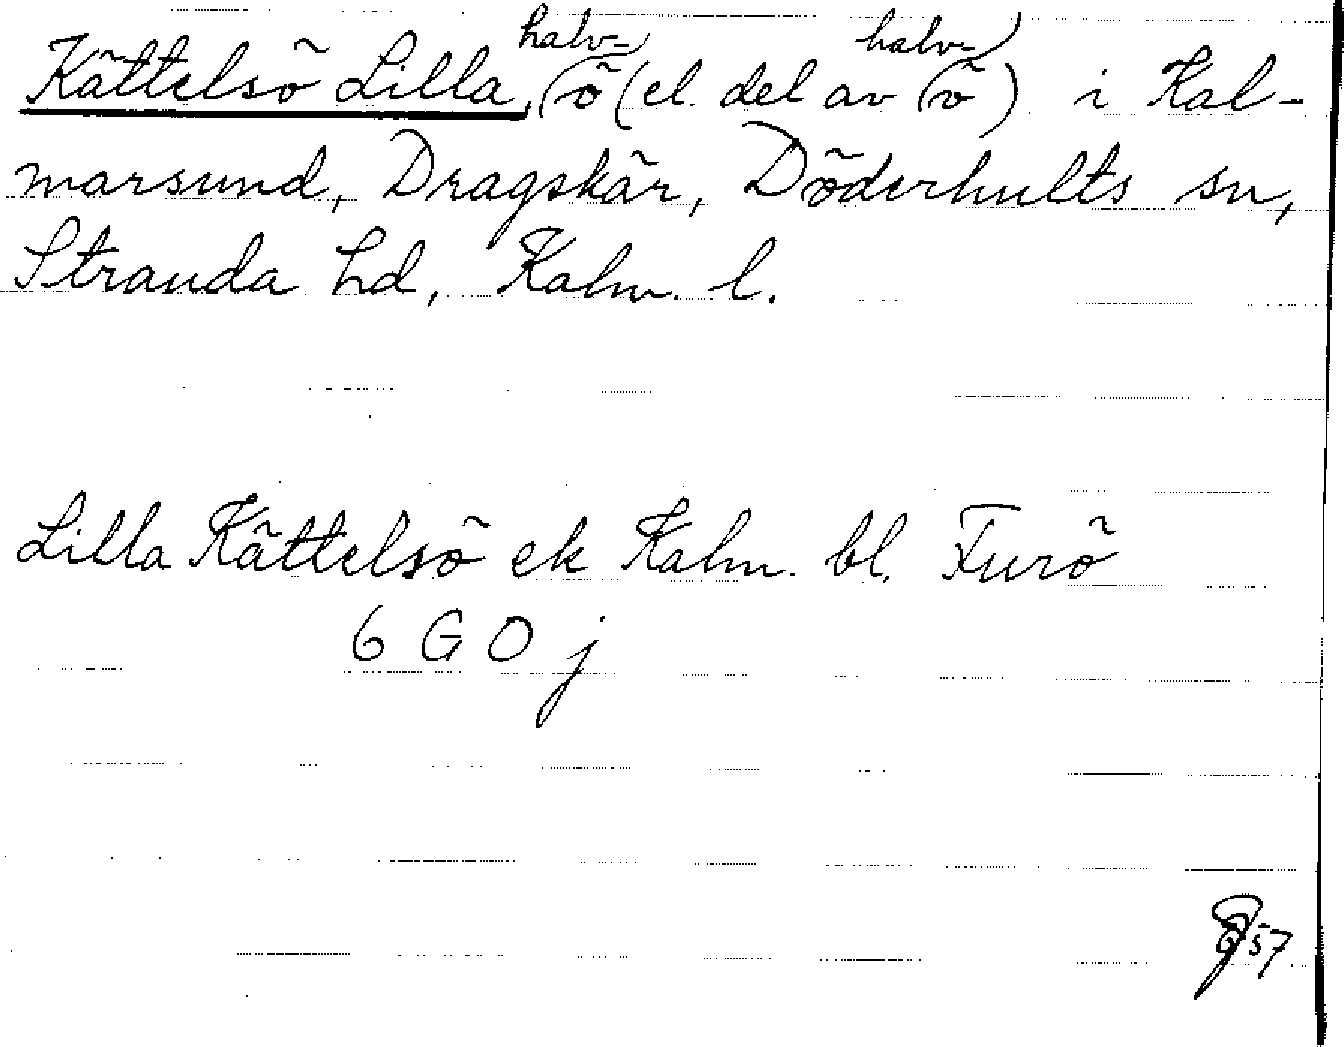 Kättelsö Lilla, halv-ö (el. del av halv-ö) i Kal-
marsund, Dragskär, Döderhults sn,
Stranda hd, Kalm. l.
Lilla Kättelsö ek Kalm. bl. Furö
6 G O j
57